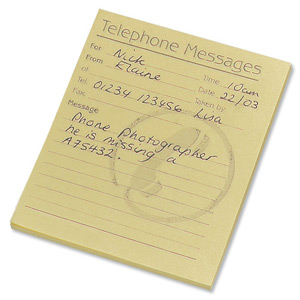 Telephone Messages
For Nick Time 10am
From Elaine Date 22/03
of Taken by Lisa
Tel. 01234 123456
Fax.
Message
Phone Photographer
he is missing a
A75432.